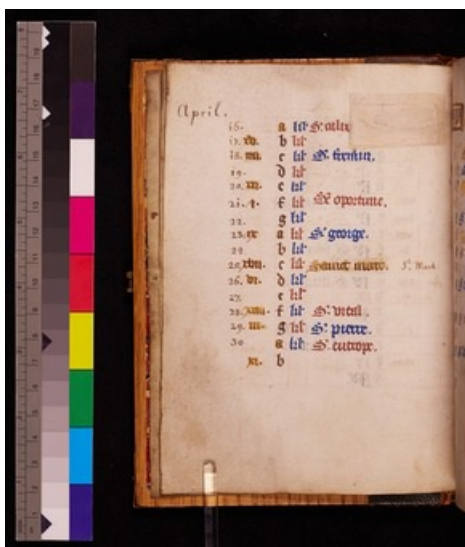 April.
16. a kl' S'
17. b kl'
18. c kl' S' firmin.
19. d kl'
20. c kl'
21. f kl' Se oportune.
22. g kl'
23. ix a kl' S' george.
24. b kl'
25. xvii c kl' Sainct marc. St. Mark
26. vi d kl'
27. e kl'
28. f kl' S' vital.
29. iii g kl' S' pierre.
30 a kl' S' eutrope.
xi. b